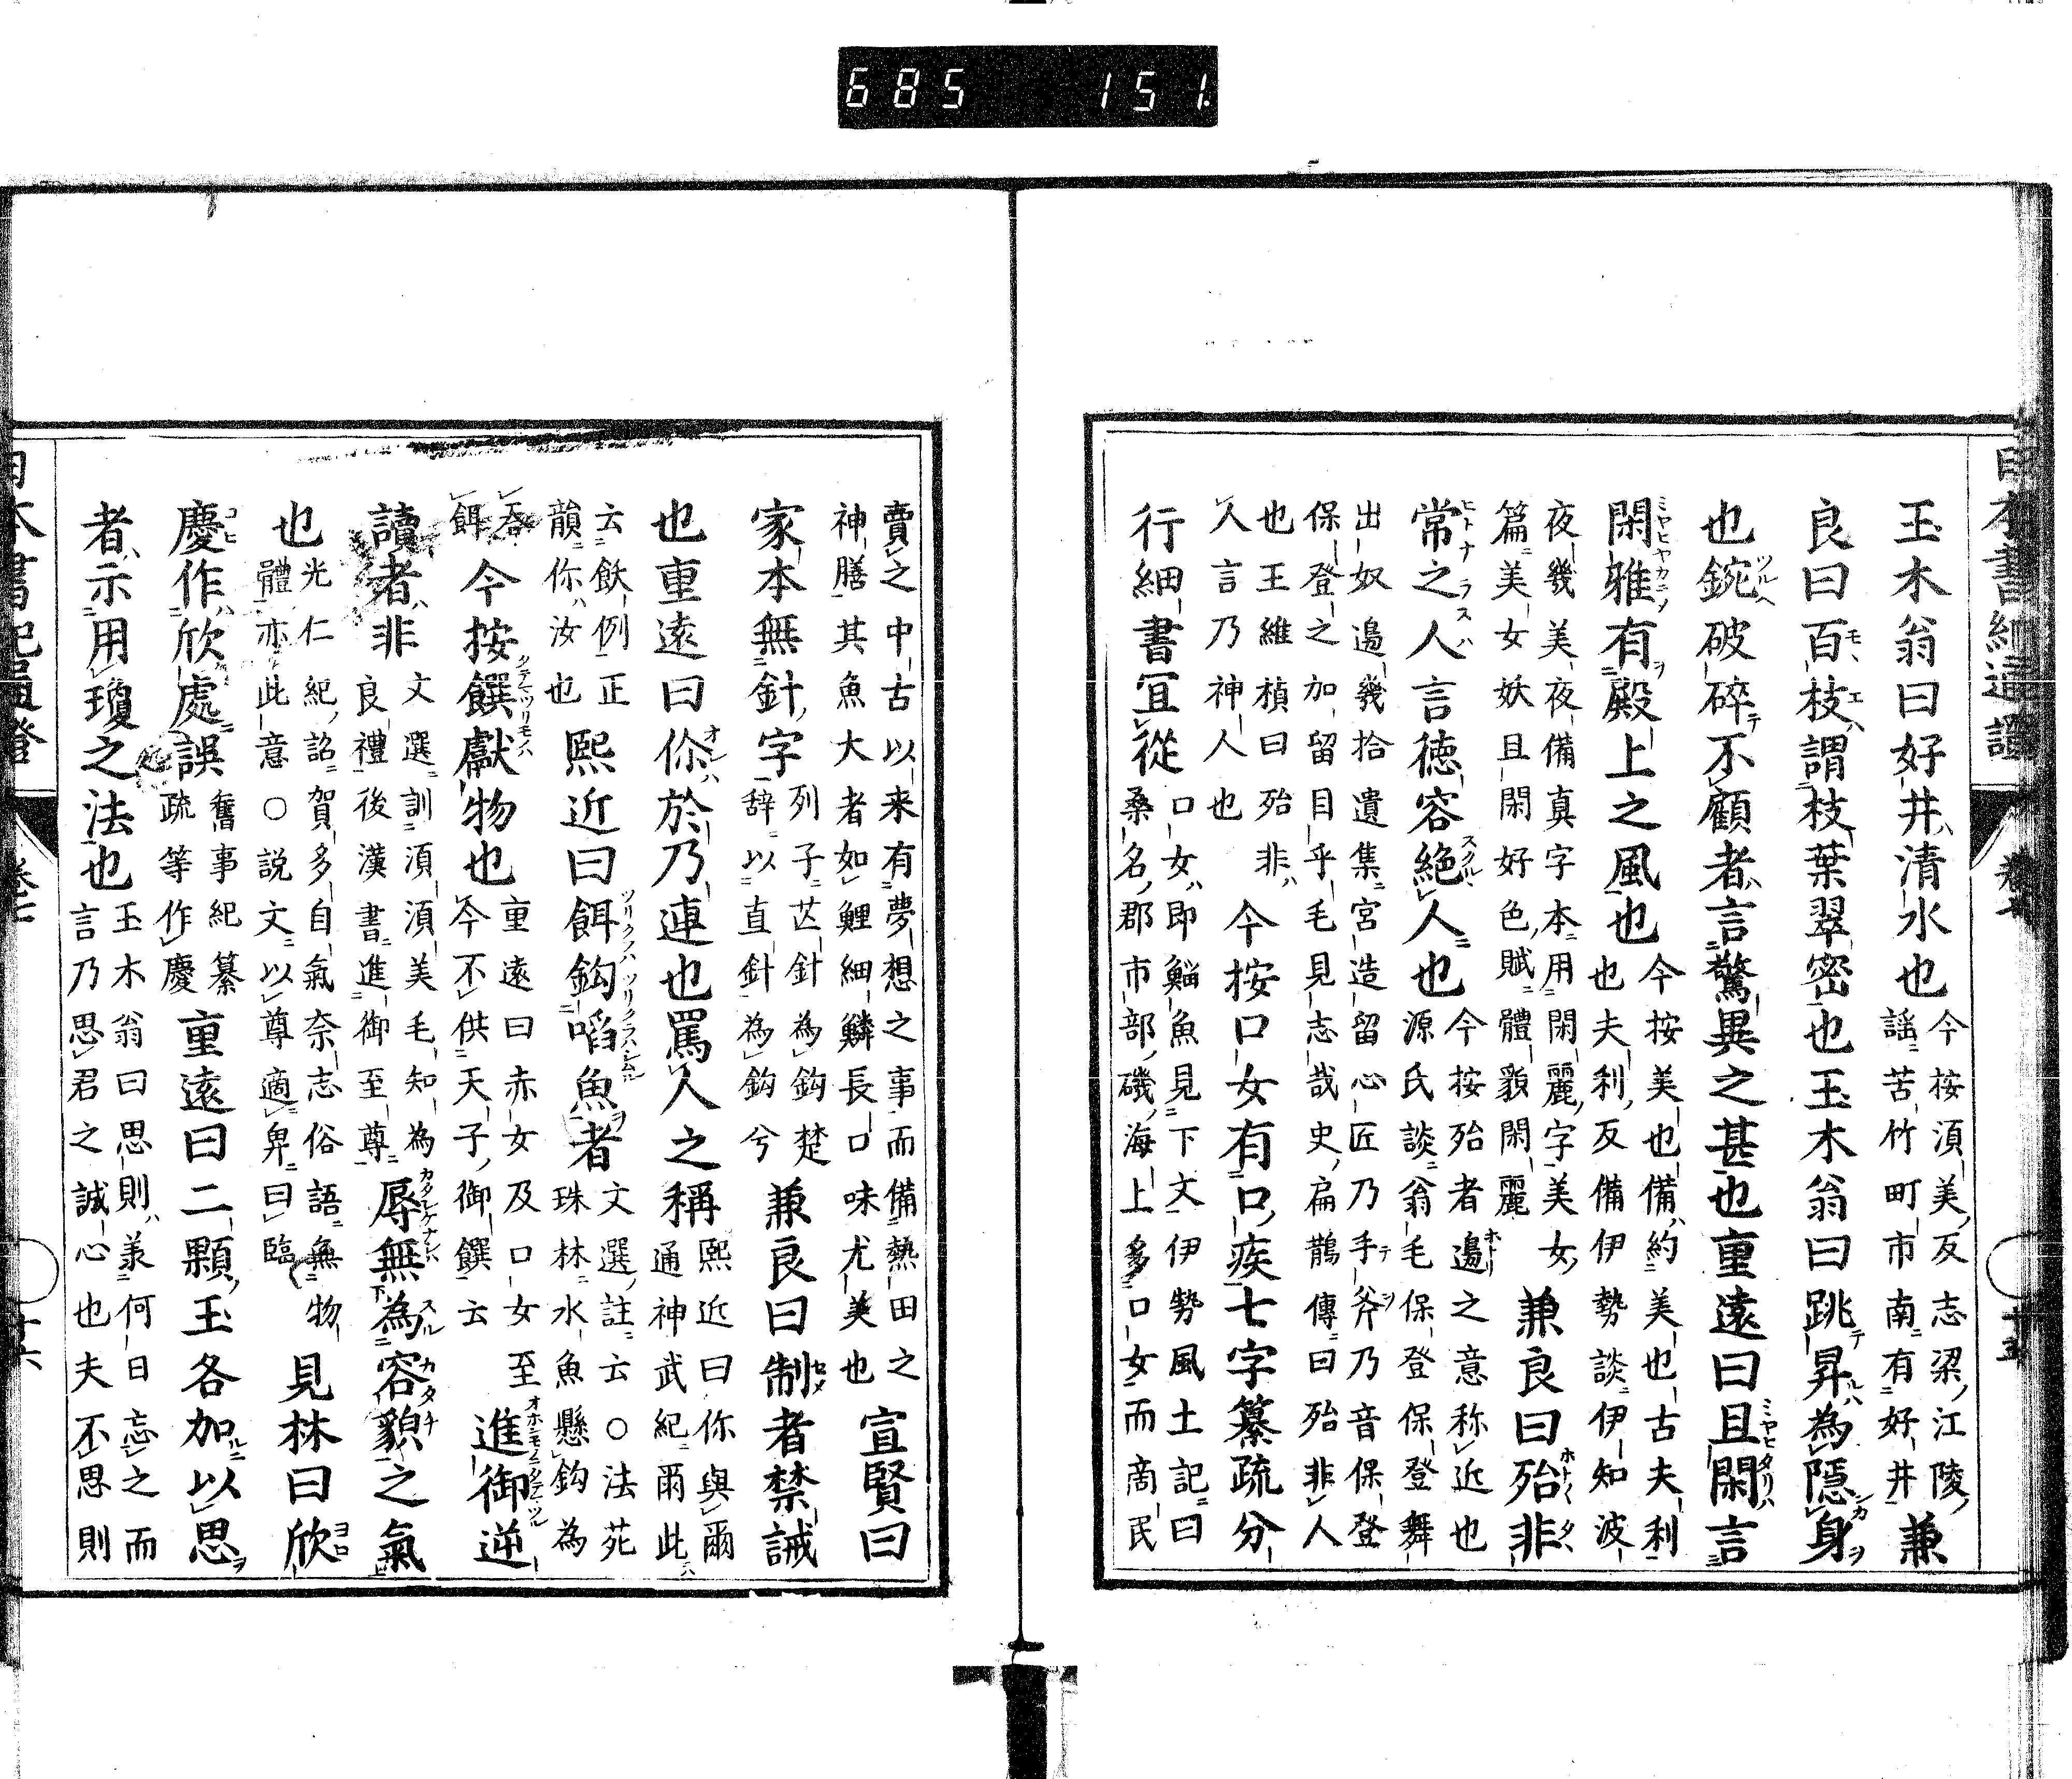 685 151.
日本書紀通證
卷七
十五
玉木翁曰好井清水也
今按湏美反志梁江陵
謡苦竹町市南有好井
兼
良曰百枝謂枝葉翠密也玉木翁曰跳昇為隱身
也鋺破碎不顧者言驚異之甚也重遠曰且閑言
閑雅有殿上之風也
今按美也備約美也古夫利
也夫利反備伊勢談伊知波
夜幾美夜備真字本用閑麗字美女
篇美女妖且閑好色賦體貌閑麗
兼良曰殆非
常之人言德容絶人也
今按殆者邊之意称近也
源氏談翁毛保登保登舞
出奴邉幾拾遺集宮造留心匠乃手斧乃音保登
保登之加留目乎毛見志哉史扁鵲傳曰殆非人
也王維楨曰殆非
人言乃神人也
今按口女有口疾七字纂疏分
行細書宜從
口女即鯔魚見下文伊勢風土記曰
桑名郡市部磯海上多口女而商民
賣之中古以来有夢想之事而備熱田之
神膳其魚大者如鯉細鱗長口味尤美也
宣賢曰
家本無針字
列子芒針為鈎楚
辞以直針為鈎兮
兼良曰制者禁誡
也重遠曰伱於乃連也罵人之稱
熙近曰伱與爾
通神武紀爾此
云飲例正
韻伱汝也
熙近曰餌鈎啗魚者
文選註云〇法苑
珠林水魚懸鈎為
呑
餌
今按饌獻物也
重遠曰赤女及口女至
今不供天子御饌云
進御逆
讀者非
文選訓湏湏美毛知為
良禮後漢書進御至尊
辱無為容貌之氣
也
光仁紀詔賀多自氣奈志俗語無物
體亦此意〇説文以尊適卑曰臨
見林曰欣
慶作欣處誤
舊事紀纂
疏等作慶
重遠曰二顆玉各加以思
者示用瓊之法也
玉木翁曰思則羕何日忘之而
言乃思君之誠心也夫不思則
日本書紀通證
卷七
十六